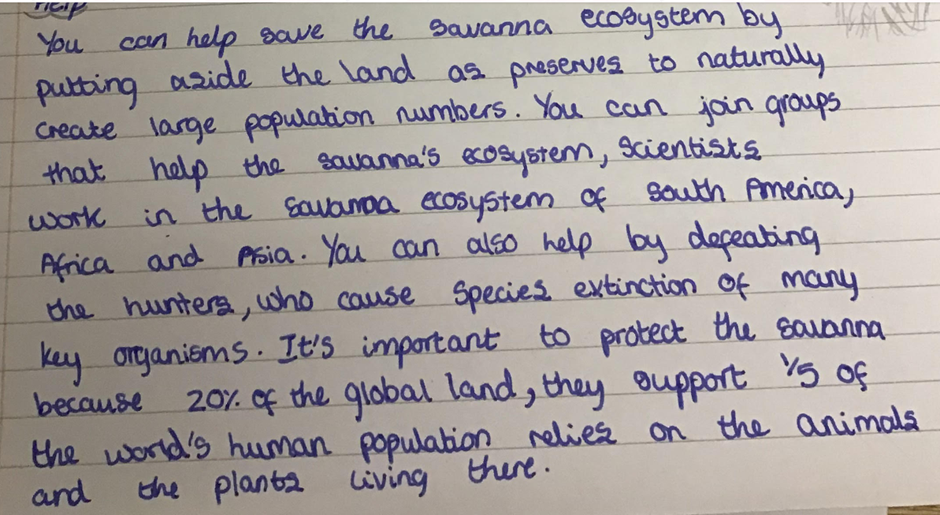 Help
You can help save the savanna ecosystem by
putting aside the land as preserves to naturally
create large population numbers. You can join groups
that help the savanna's ecosystem, Scientists
work in the savanna ecosystem of south America,
Africa and Asia. You can also help by defeating
the hunters, who cause species extinction of many
key organisms. It's important to protect the savanna
because 20% of the global land, they support 1/5 of
the world's human population relies on the animals
and the plants living there.